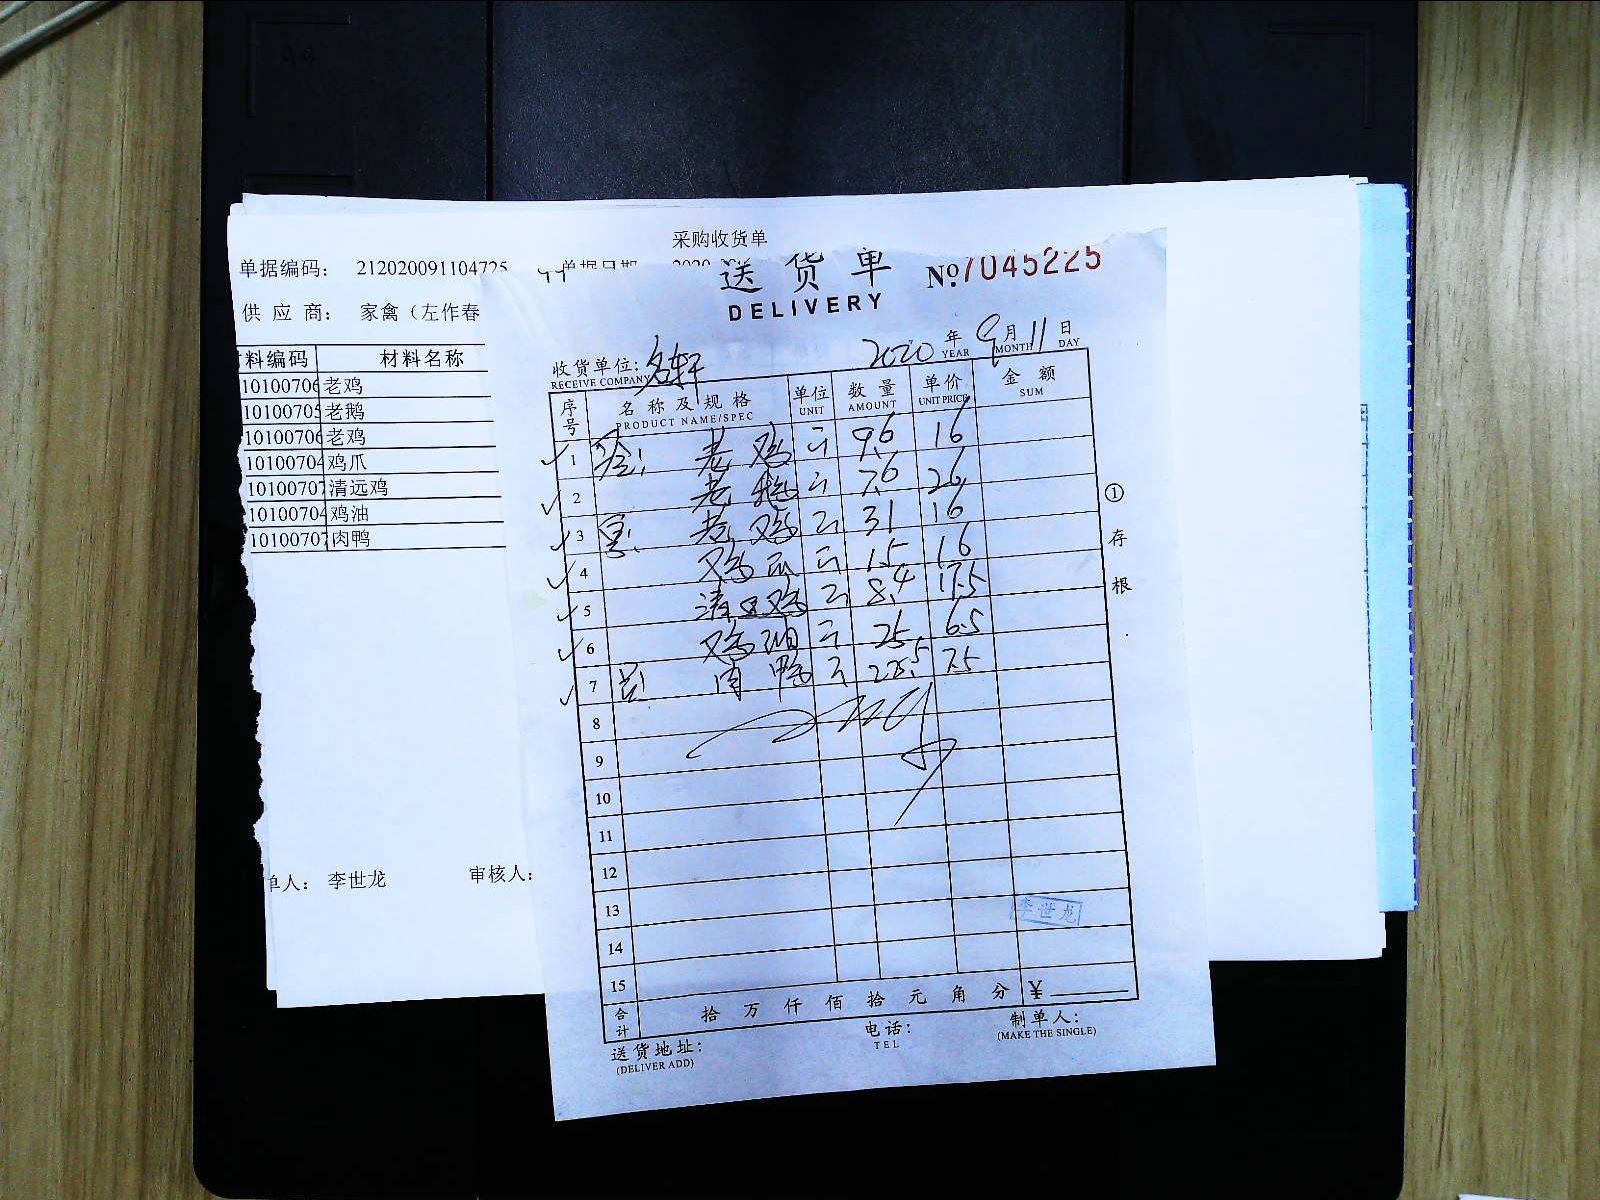 采购收货单
单据编码： 212020091104725 单据日期
供 应 商： 家禽（左作春
料编码 材料名称
10100706 老鸡
1010070 老鹅
10100706 老鸡
1010070 鸡爪
1010070 清远鸡
1010070 鸡油
1010070 肉鸭
单人： 李世龙 审核人：
送 货 单 № 7045225
DELIVERY
收货单位： 名轩 2020 年 9 月 11 日
RECEIVE COMPANY YEAR MONTH DAY
序号 名 称 及 规 格 单位 数 量 单价 金 额
PRODUCT NAME/SPEC UNIT AMOUNT UNIT PRICE SUM
1 老鸡 斤 9.6 16
2 老鹅 斤 7.6 26
3 老鸡 斤 31 16
4 鸡爪 斤 1.5 16
5 清远鸡 斤 8.4 17.5
6 鸡油 斤 25 6.5
7 肉鸭 斤 7.5
8
9
10
11
12
13 李世龙
14
15
合计 拾 万 仟 佰 拾 元 角 分 ¥
送货地址： 电话： 制单人：
(DELIVER ADD) TEL (MAKE THE SINGLE)
① 存 根